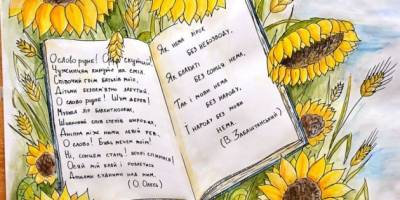 О слово рідне! Орле скутий!
Чужинцям кинуте на сміх!
Співочий грім батьків моїх,
Дітьми безпам'ятно забутий.
О слово рідне! Шум дерев!
Музика зір блакитнооких,
Шовковий спів степів широких,
Дніпра між ними левий рев.
О слово! Будь мечем моїм!
Ні, сонцем стань! вгорі спинися!
Осяй мій край і розлетися
Дощами судними над ним.
(О. Олесь)
Як нема зірок
без небозводу,
Як блакиті
без сонця нема,
Так і мови нема
без народу,
І народу без мови
нема
(В. Забаштанський)